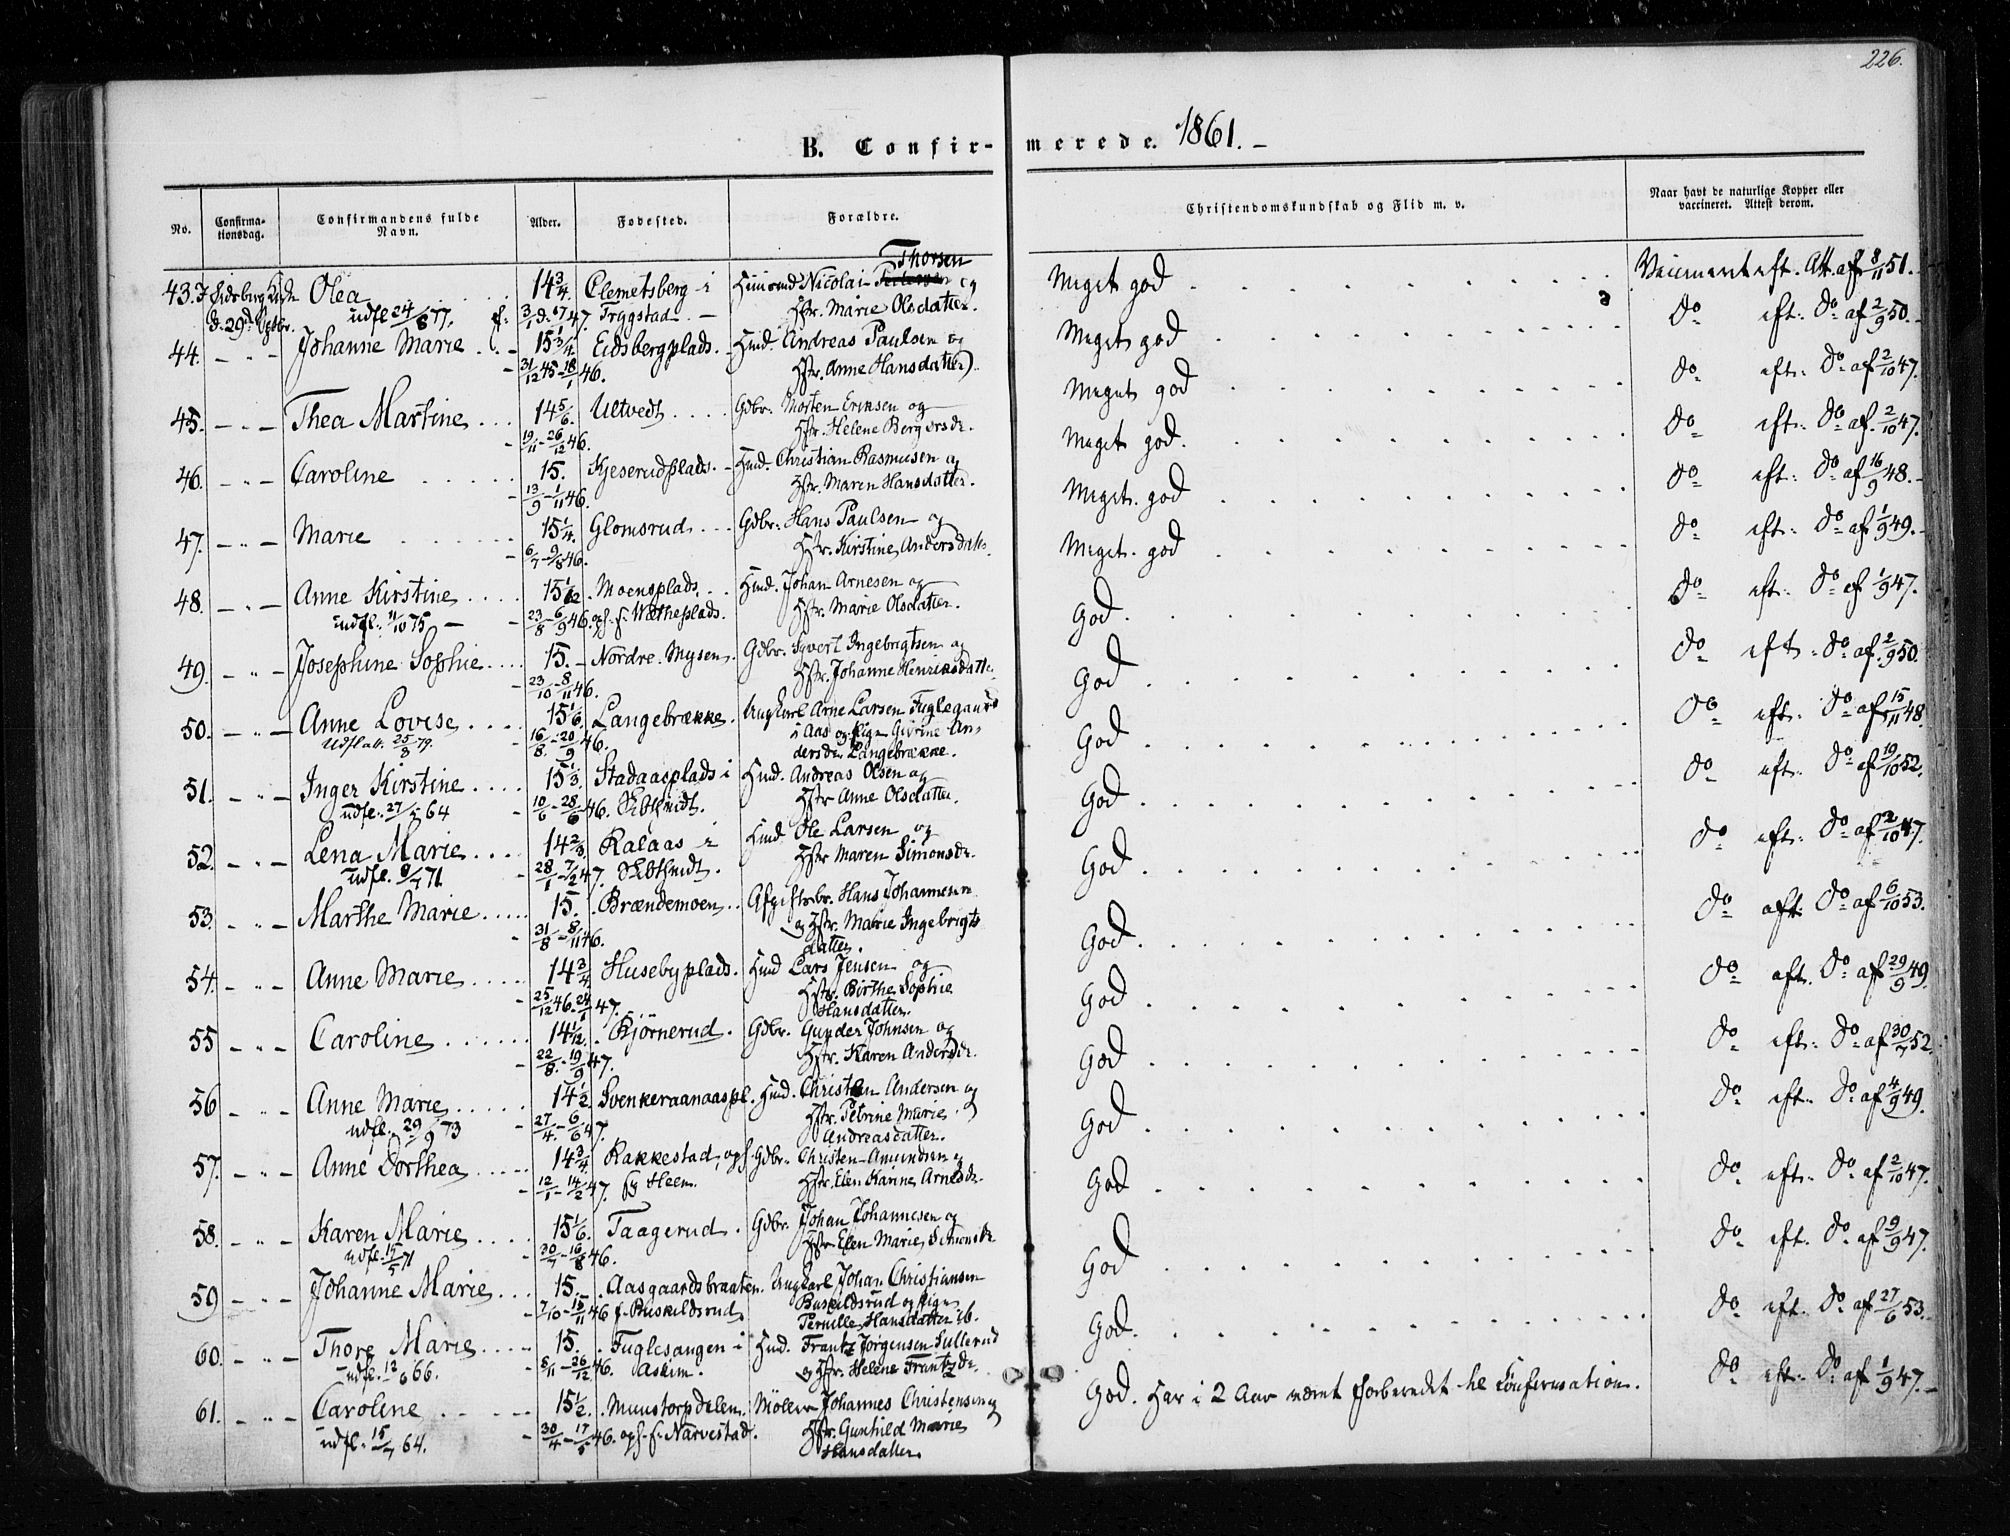 226.
B. Confirmerede. 1861. –
No. | Confirmationsdag. | Confirmandens fulde Navn. | Alder. | Fødested. | Forældre. | Christendomskundskab og Flid m. v. | Naar havt de naturlige Kopper eller vaccineret. Attest derom.
43. Olea 14 3/4. Clemetsberg i Huusmd Nicolai Thorsen og Meget god Vaccineret eft. Att. af 8/11 51.
d. 29d Septbr. udfl 24/8 77. Trygstad. – Hstr. Marie Olsdatter.
44. – " – Johanne Marie 15 3/4. Eidsbergplads. Hmd. Andreas Paulsen og Meget god do eft. do af 2/9 50.
31/12 45 – 18/1 46. Hstr. Anne Hansdatter.
45. – " – Thea Martine 14 5/6. Ultvedt Gdbr. Morten Eriksen og Meget god do eft. do af 2/10 47.
19/11 – 26/12 46. Hstr. Helene Bergersdr.
46. – " – Caroline 15. Kjeserudplads. Hmd. Christian Rasmusen og Meget god. do eft. do af 2/10 47.
13/9 – 1/11 46. Hstr. Maren Hansdatter.
47. – " – Marie 15 1/4. Glomsrud Gdbr. Hans Paulsen og Meget god do eft. do af 16/9 48.
6/7 – 9/8 46. Hstr. Kirstine Andersdatter
48. – " – Anne Kirstine 15 1/12. Moensplads. Hmd. Johan Arnesen og Meget god do eft. do af 1/9 49.
udfl. 11/10 75 – 23/8 – 6/9 46. oph. f. Wætheplads. Hstr. Marie Olsdatter.
49. – " – Josephine Sophie 15. – Nordre Mysen. Gdbr. Syvert Ingebrigtsen og God. do eft. do af 1/9 47.
23/10 – 8/11 46. Hstr. Johanne Henriksdatter
50. – " – Anne Lovise 15 1/6. Langebrække. Ungkarl Arne Larsen Fuglegaard God do eft. do af 2/9 50.
Udfl. att. 25/3 79. 16/8 – 20/9 46. i Aas og Pige Givrine An-
dersdr Langebrække.
51. – " – Inger Kirstine 15 1/3. Stadaasplads i Hmd. Andreas Olsen og God do eft. do af 15/11 48.
udfl. 27/5 64 10/6 – 28/6 46. Skibtvedt. Hstr Anne Olsdatter.
52. – " – Lena Marie 14 2/3. Kalaas i Hmd Ole Larsen og God do eft. do af 19/10 52.
28/1 – 7/2 47. Skibtvedt. Hstr Maren Simonsdr.
53. – " – Marthe Marie 15. Brændemoen Afgiftsbr. Hans Johannesen God do eft. do af 2/10 47.
31/8 – 8/11 46. og Hstr. Marie Ingebrigts
datter.
54. – " – Anne Marie 14 3/4 Husebyplads. Hmd Lars Jensen og God. do eft. do af 6/10 53.
25/12 46 – 24/1 47. Hstr. Birthe Sophie
Hansdatter.
55 – " – Caroline 14 1/12. Kjørnerud. Gdbr. Gunder Johnsen og God do eft. do af 29/9 49.
22/8 – 19/9 47. Hstr. Karen Andersdr.
56 – " – Anne Marie 14 1/2. Svenkeraanaaspl. Hmd. Christen Andersen og God do eft. do af 30/7 52.
udfl. 29/9 73 27/4 – 6/6 47. Hstr. Petrine Marie
Andreasdatter.
57. – " – Anne Dorthea 14 3/4. Rakkestad, oph. Gdbr. Christen Amundsen og God do eft. do af 4/9 49.
12/1 – 14/2 47. Heen. Hstr. Elen Karine Arnesdr.
58. – " – Karen Marie 15 1/6. Taagerud. Gdbr. Johan Johannesen og God do eft. do af 2/10 47.
30/7 – 16/8 46. Hstr. Elen Marie Simonsdr
59 – " – Johanne Marie 15. Aasgaardsbraaten. Ungkarl Johan Christiansen God do eft. do af 9/9 47.
7/10 – 15/11 46 f. Buskildsrud Buskildsrud og Pige
Pernille Hansdatter ib.
60. – " – Thore Marie 15. Fuglesangen i Hmd. Frantz Jørgensen Sullerud God. do eft. do af 27/6 53.
udfl. 12/6 66. 5/11 – 26/12 46. Askim. og Hstr. Helene Frantzdr.
61. – " – Caroline 15 1/2. Munstorpdalen. Møller Johannes Christensen og God. Har i 2 Aar været forberedet til Confirmation. do eft. do af 1/9 47.
udfl. 15/7 64. 30/4 – 17/5 46. oph. f. Narvestad. Hstr. Gunhild Marie
Hansdatter.